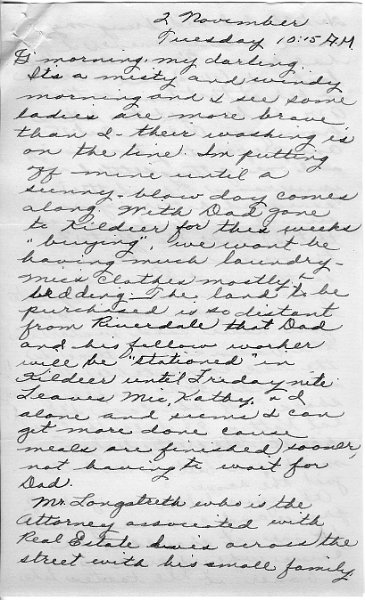 2 November
Tuesday 10:15 A.M.
G'morning, my darling,
Its a misty and windy
morning and I see some
ladies are more brave
than I - their washing is
on the line. Im putting
off mine until a
sunny-blow day comes
along. With Dad gone
to Kildeer for this weeks
"buying", we wont be
having much laundry -
Mics clothes mostly &
bedding - The land to be
purchased is so distant
from Riverdale that Dad
and his fellow worker
will be "stationed" in
Kildeer until Friday nite.
Leaves Mic, Kathy, & I
alone and seems I can
get more done cause
meals are finished sooner,
not having to wait for
Dad.
Mr. Longstreth who is the
Attorney associated with
Real Estate lives across the
street with his small family.